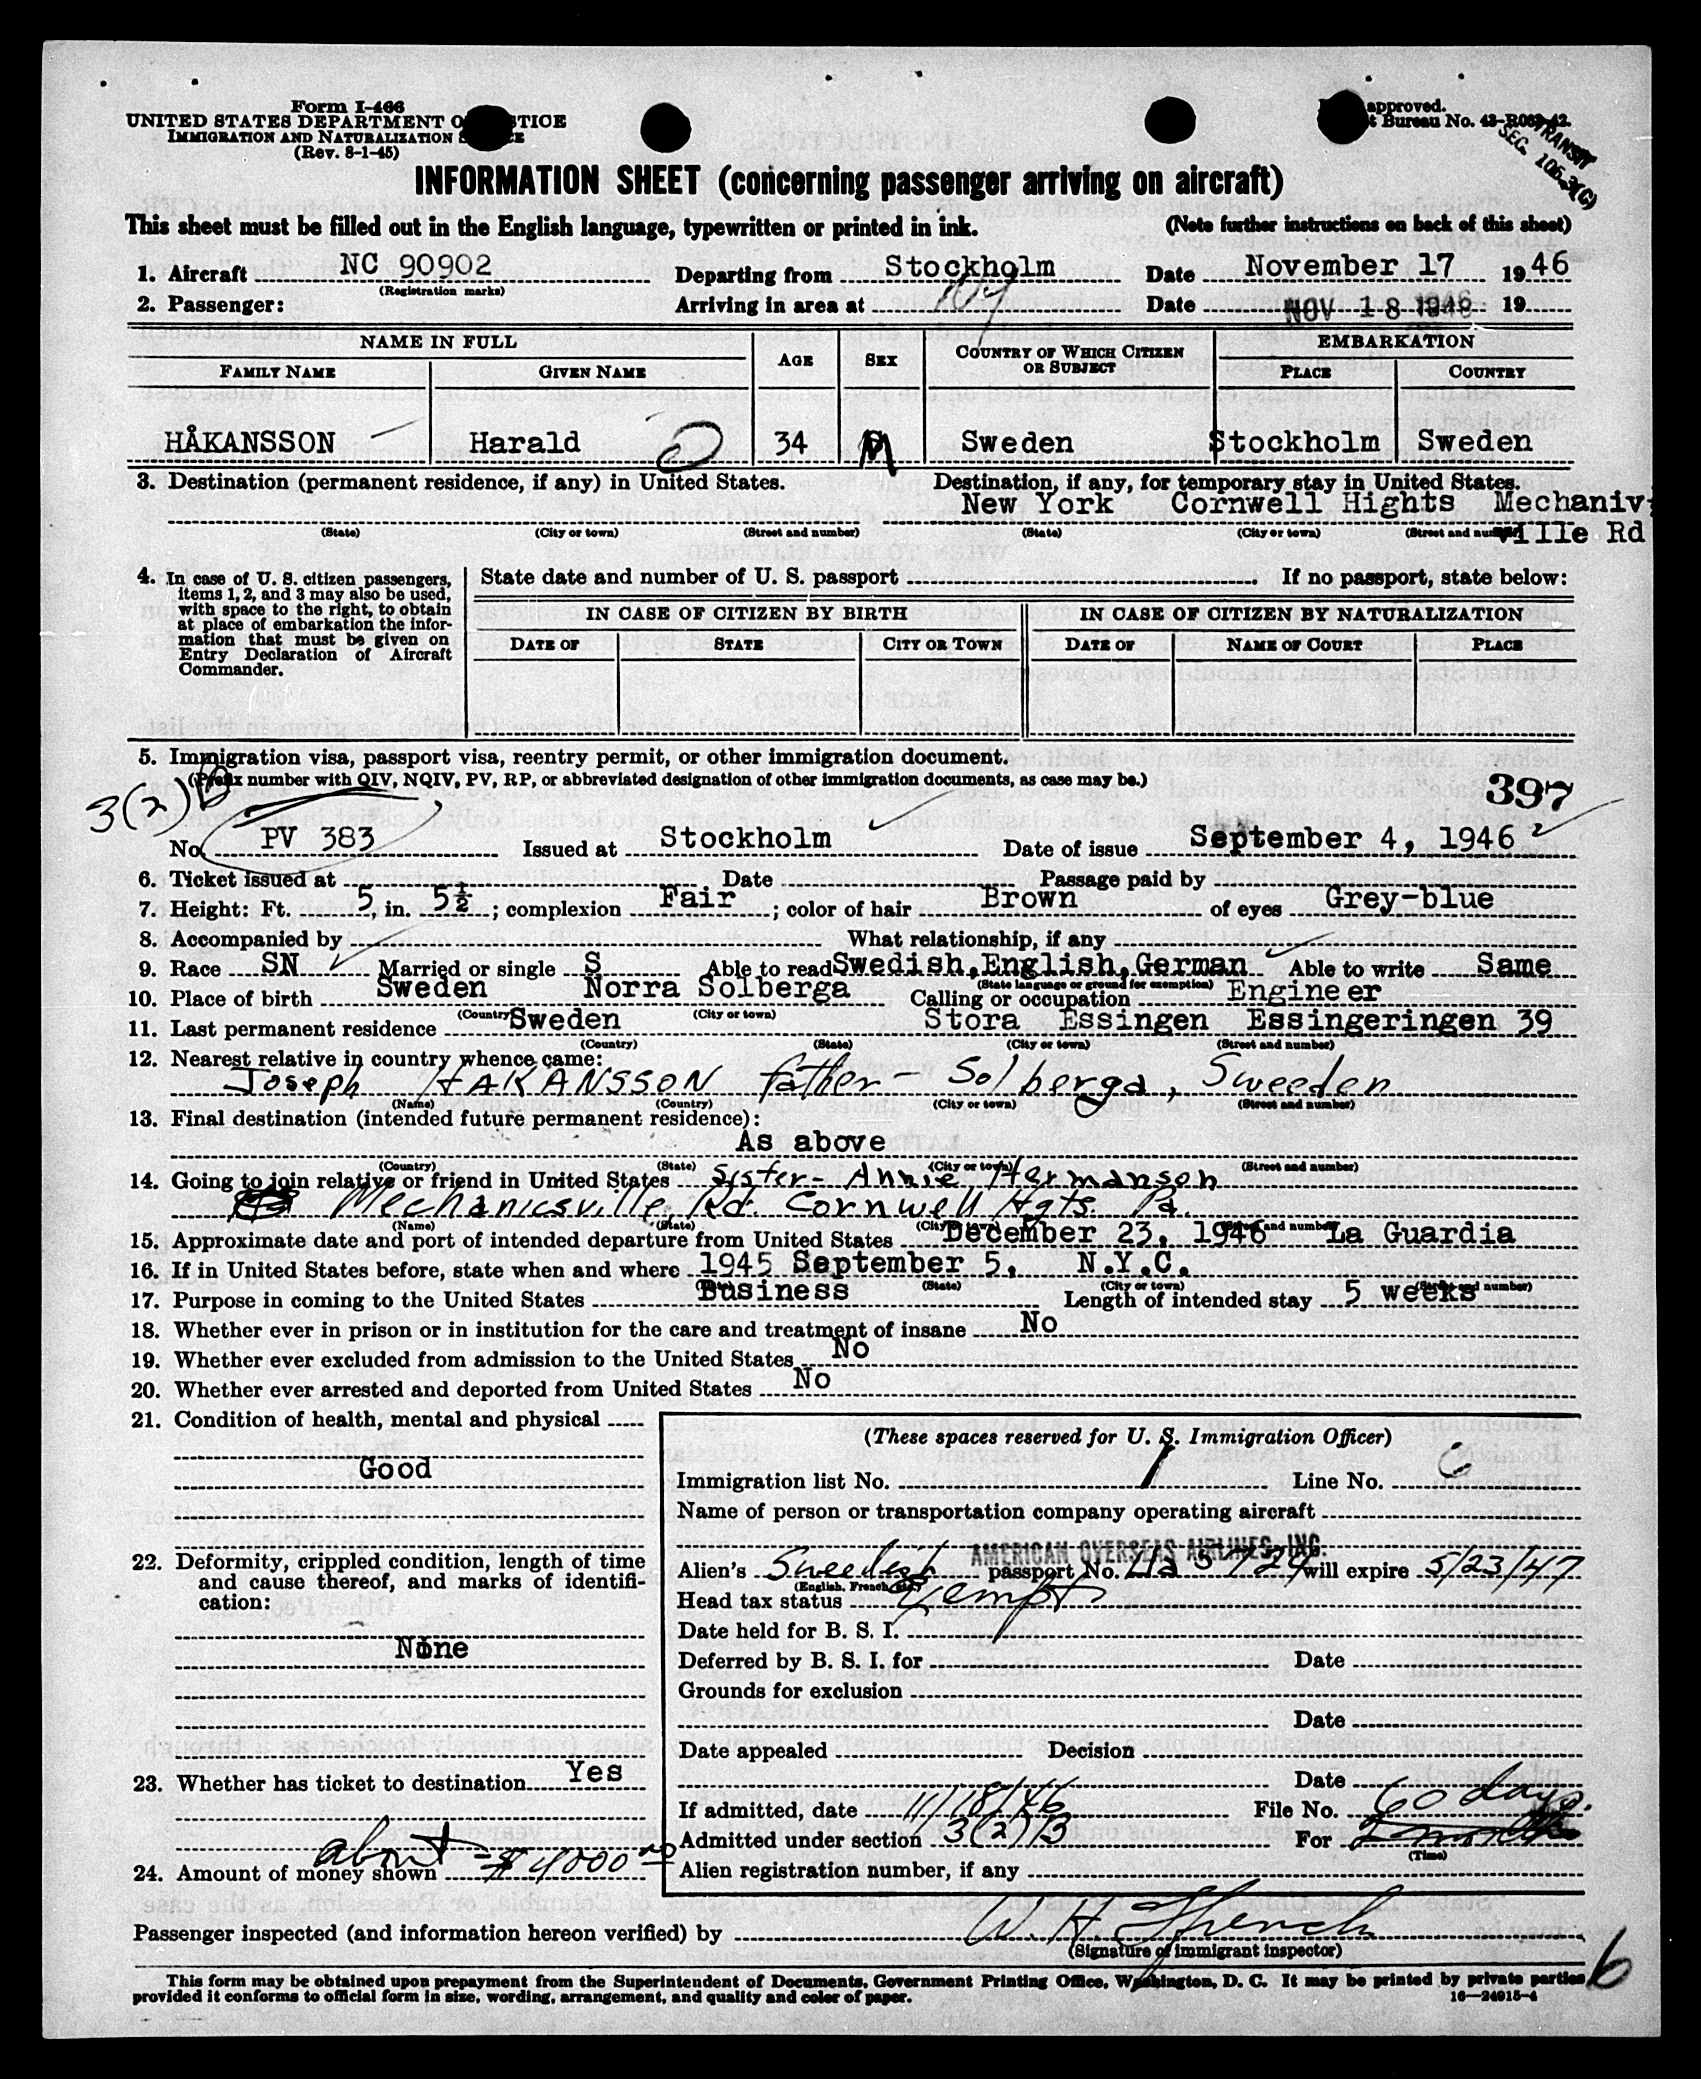 Form I-466
UNITED STATES DEPARTMENT OF JUSTICE
IMMIGRATION AND NATURALIZATION SERVICE
(Rev. 8-1-45)
approved.
Bureau No. 43-R063-42.
TRANSIT
SEC. 106.3(C)
INFORMATION SHEET (concerning passenger arriving on aircraft)
This sheet must be filled out in the English language, typewritten or printed in ink. (Note further instructions on back of this sheet)
1. Aircraft NC 90902 Departing from Stockholm Date November 17 1946
(Registration marks)
2. Passenger: Arriving in area at NY Date NOV 18 1946 19
NAME IN FULL AGE SEX COUNTRY OF WHICH CITIZEN OR SUBJECT EMBARKATION
FAMILY NAME GIVEN NAME PLACE COUNTRY
HÅKANSSON Harald 34 M Sweden Stockholm Sweden
3. Destination (permanent residence, if any) in United States. Destination, if any, for temporary stay in United States.
New York Cornwell Hights Mechaniv-
(State) (City or town) (Street and number) (State) (City or town) (Street and number) ville Rd
4. In case of U. S. citizen passengers, items 1, 2, and 3 may also be used, with space to the right, to obtain at place of embarkation the information that must be given on Entry Declaration of Aircraft Commander.
State date and number of U. S. passport If no passport, state below:
IN CASE OF CITIZEN BY BIRTH IN CASE OF CITIZEN BY NATURALIZATION
DATE OF STATE CITY OR TOWN DATE OF NAME OF COURT PLACE
5. Immigration visa, passport visa, reentry permit, or other immigration document.
(Prefix number with QIV, NQIV, PV, RP, or abbreviated designation of other immigration documents, as case may be.)
397
3(2)B
No. PV 383 Issued at Stockholm Date of issue September 4, 1946
6. Ticket issued at Date Passage paid by
7. Height: Ft. 5, in. 5½; complexion Fair; color of hair Brown of eyes Grey-blue
8. Accompanied by What relationship, if any
9. Race SN Married or single S Able to read Swedish, English, German Able to write Same
(State language or ground for exemption)
10. Place of birth Sweden Norra Solberga Calling or occupation Engineer
(Country) (City or town)
11. Last permanent residence Sweden Stora Essingen Essingeringen 39
(Country) (State) (City or town) (Street and number)
12. Nearest relative in country whence came:
Joseph HAKANSSON father - Solberga, Sweeden
(Name) (Country) (City or town) (Street and number)
13. Final destination (intended future permanent residence):
As above
(Country) (State) (City or town) (Street and number)
14. Going to join relative or friend in United States Sister - Annie Hermanson
Mechanicsville Rd. Cornwell Hgts. Pa.
(Name) (State) (City or town) (Street and number)
15. Approximate date and port of intended departure from United States December 23, 1946 La Guardia
16. If in United States before, state when and where 1945 September 5, N.Y.C.
(State) (City or town) (Street and number)
17. Purpose in coming to the United States Business Length of intended stay 5 weeks
18. Whether ever in prison or in institution for the care and treatment of insane No
19. Whether ever excluded from admission to the United States No
20. Whether ever arrested and deported from United States No
21. Condition of health, mental and physical
Good
22. Deformity, crippled condition, length of time and cause thereof, and marks of identification:
None
23. Whether has ticket to destination Yes
24. Amount of money shown about $4000 no
(These spaces reserved for U. S. Immigration Officer)
Immigration list No. 1 Line No. 6
Name of person or transportation company operating aircraft
AMERICAN OVERSEAS AIRLINES, INC.
Alien's Sweedish passport No. Ua 5724 will expire 5/23/47
(English, French, etc.)
Head tax status Exempt
Date held for B. S. I.
Deferred by B. S. I. for Date
Grounds for exclusion
Date
Date appealed Decision
Date
If admitted, date 11/18/46 File No. 60 days.
Admitted under section 3(2)B For
(Time)
Alien registration number, if any
Passenger inspected (and information hereon verified) by W. H. French
(Signature of immigrant inspector)
6
This form may be obtained upon prepayment from the Superintendent of Documents, Government Printing Office, Washington, D. C. It may be printed by private parties
provided it conforms to official form in size, wording, arrangement, and quality and color of paper. 16—24915-4